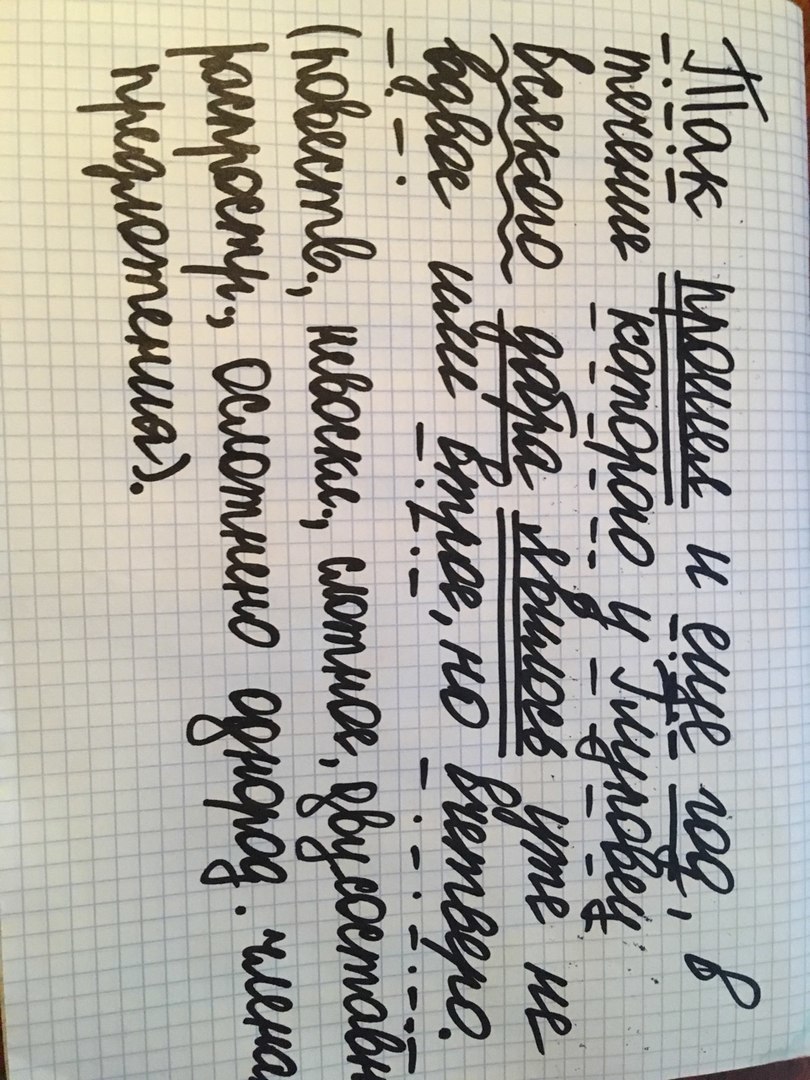 Так прошел и еще год, в
течение которого у Глуповец
всякого добра явилось уже не
вдвое или втрое, но вчетверо.
(повеств., невоскл., сложное, двусоставн
распростр., осложнено однород. члена
предложения).